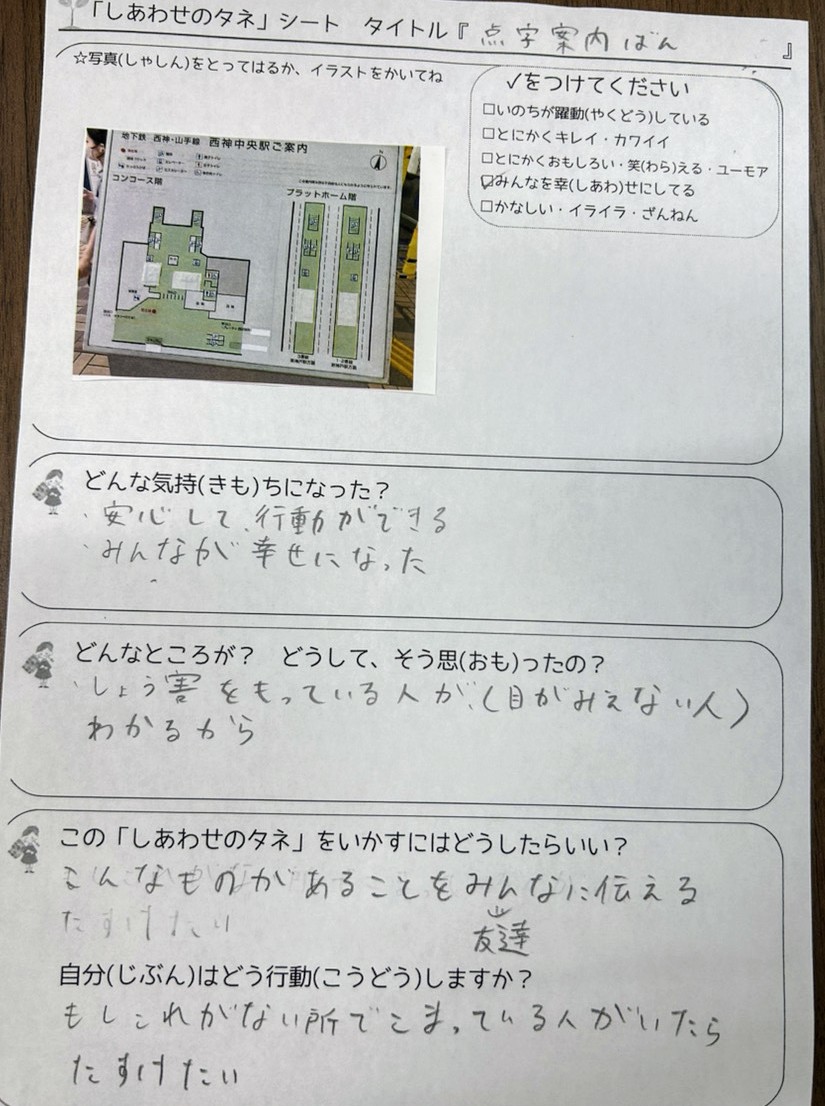 「しあわせのタネ」シート　タイトル『点字案内ばん』
☆写真(しゃしん)をとってはるか、イラストをかいてね
✓をつけてください
□いのちが躍動(やくどう)している
□とにかくキレイ・カワイイ
□とにかくおもしろい・笑(わら)える・ユーモア
☑みんなを幸(しあわ)せにしてる
□かなしい・イライラ・ざんねん
地下鉄　西神・山手線　西神中央駅ご案内
コンコース階
プラットホーム階
どんな気持(きも)ちになった？
・安心して、行動ができる
・みんなが幸せになった
どんなところが？　どうして、そう思(おも)ったの？
・しょう害をもっている人が、(目がみえない人)
わかるから
この「しあわせのタネ」をいかすにはどうしたらいい？
こんなものがあることをみんなに伝える
友達
たすけたい
自分(じぶん)はどう行動(こうどう)しますか？
もしこれがない所でこまっている人がいたら
たすけたい